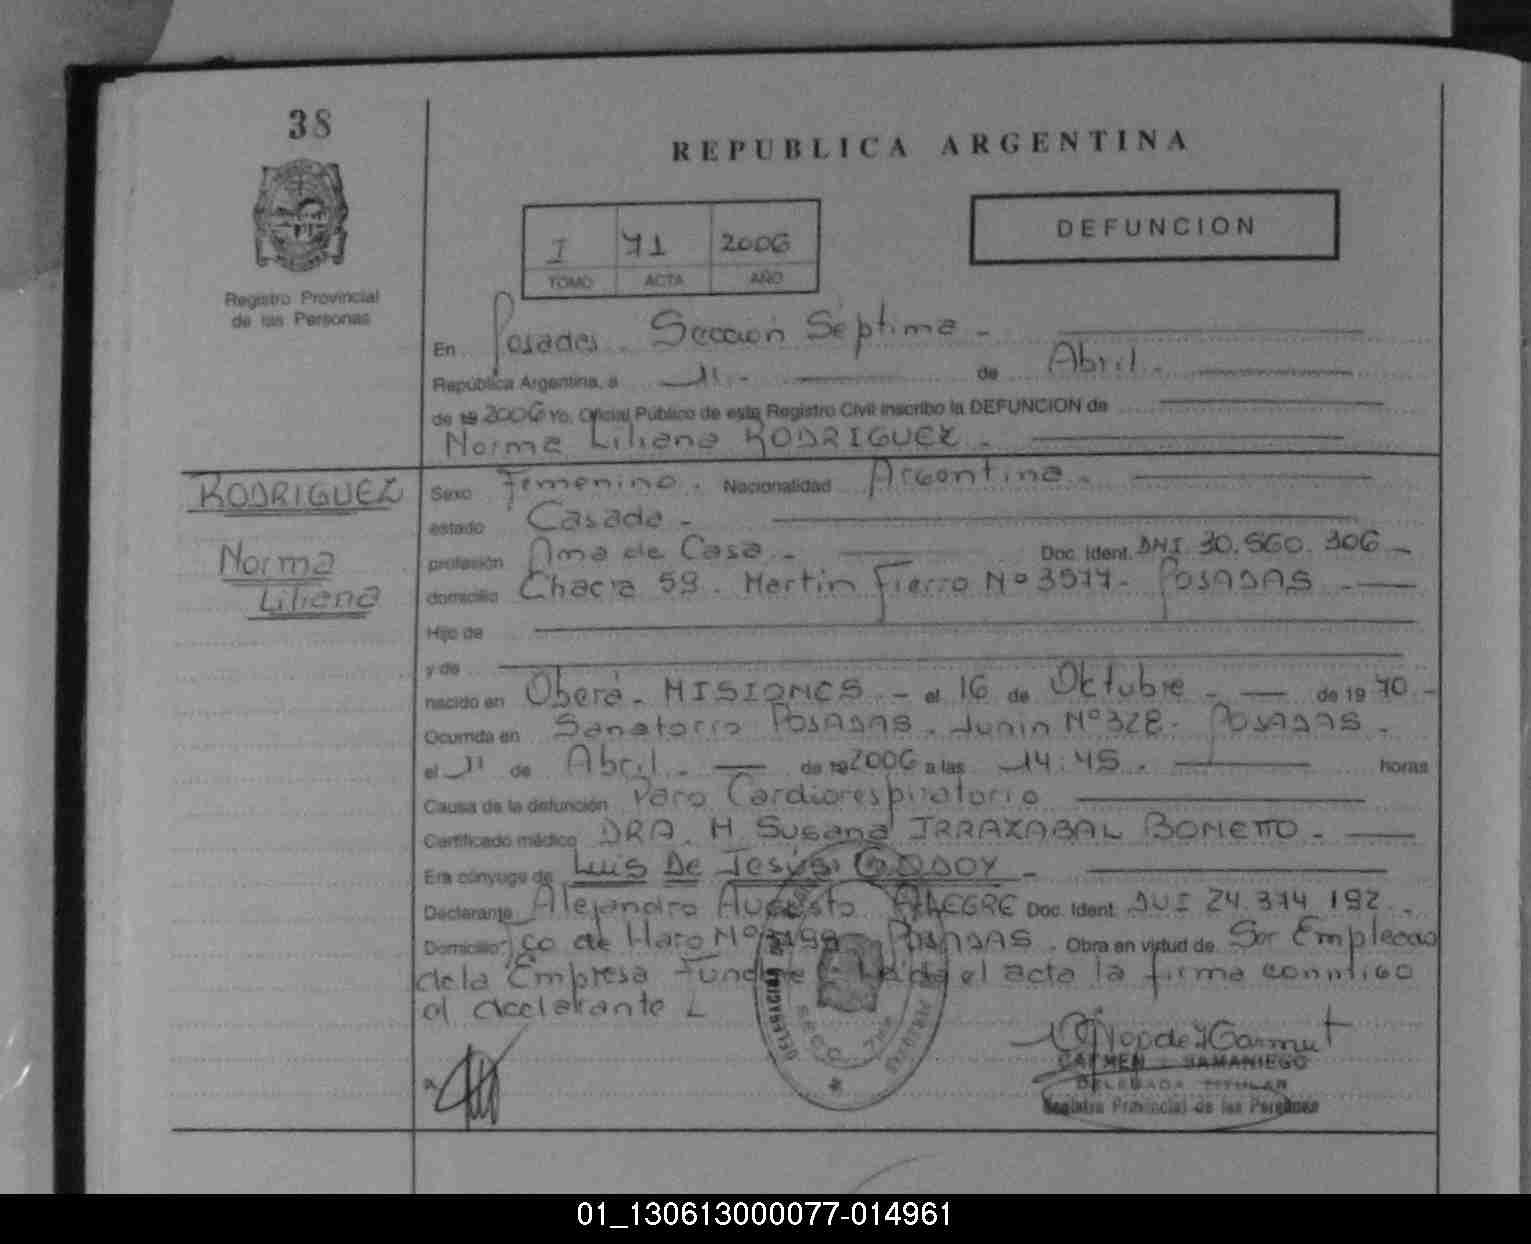 38
REPUBLICA ARGENTINA
DEFUNCION
I 71 2006
TOMO ACTA AÑO
Registro Provincial
de las Personas
En Posadas. Sección Séptima -
República Argentina, a 11 - de Abril -
de 19 2006 Yo, Oficial Público de este Registro Civil inscribo la DEFUNCION de
Norma Liliana RODRIGUEZ -
RODRIGUEZ
Norma
Liliana
Sexo Femenino. Nacionalidad Argentina -
estado Casada -
profesión Ama de Casa - Doc. Ident. DNI 30.560.306 -
domicilio Chacra 59. Martin Fierro Nº 3577 - POSADAS -
Hijo de
y de
nacido en Oberá - MISIONES - el 16 de Octubre - de 19 70 -
Ocurrida en Sanatorio POSADAS. Junin Nº 328 - POSADAS -
el 11 de Abril - de 19 2006 a las 14:45 - horas
Causa de la defunción Paro Cardiorespiratorio
Certificado médico DRA. M. Susana IRRAZABAL BONETTO -
Era cónyuge de Luis De Jesús GODOY -
Declarante Alejandro Augusto ALEGRE Doc. Ident. DNI 24.374.192 -
Domicilio Fco de Haro Nº POSADAS. Obra en virtud de Ser Empleado
de la Empresa el acta la firma conmigo
el declarante
CARMEN SAMANIEGO
DELEGADA TITULAR
Registro Provincial de las Personas
01_130613000077-014961